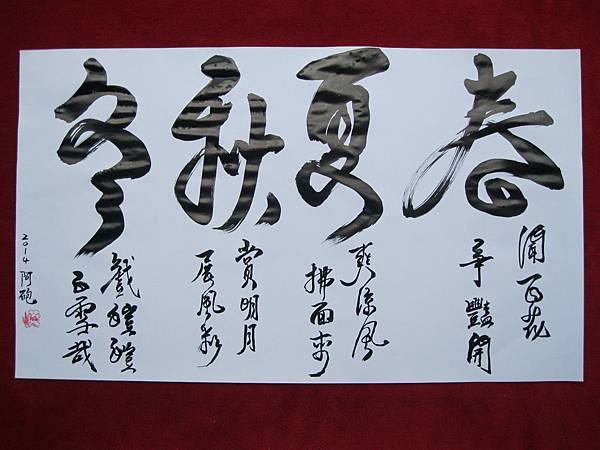 春夏秋冬
滿百花
爭豔開
爽涼風
拂面來
賞明月
展風
戲皚皚
雪哉
2014 阿砲